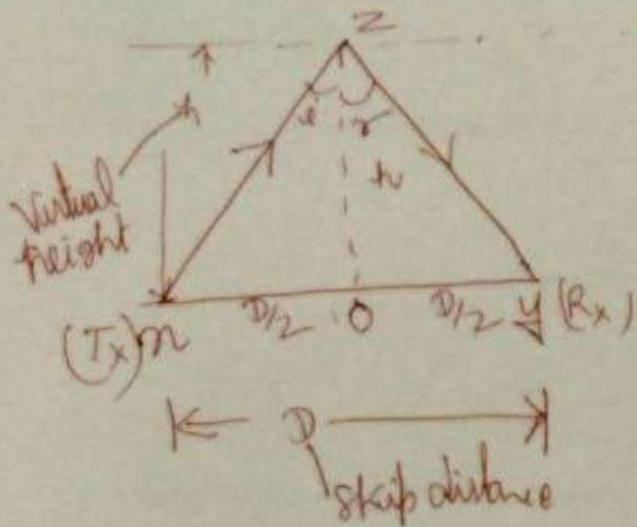 Z
i r
h
h
Virtual
height
(Tx) x D/2 O D/2 y (Rx)
D
skip distance